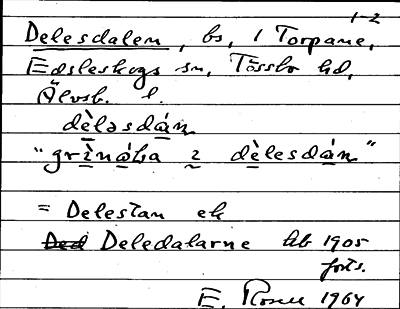 1-2
Delesdalen, bs, i Torpane,
Edsleskogs sn, Tössbo hd,
Älvsb. l.
dèləsdán
"grìnába i dèlesdán"
= Delestan ek
Deledalarne Ub 1905
forts.
E. Rosell 1964